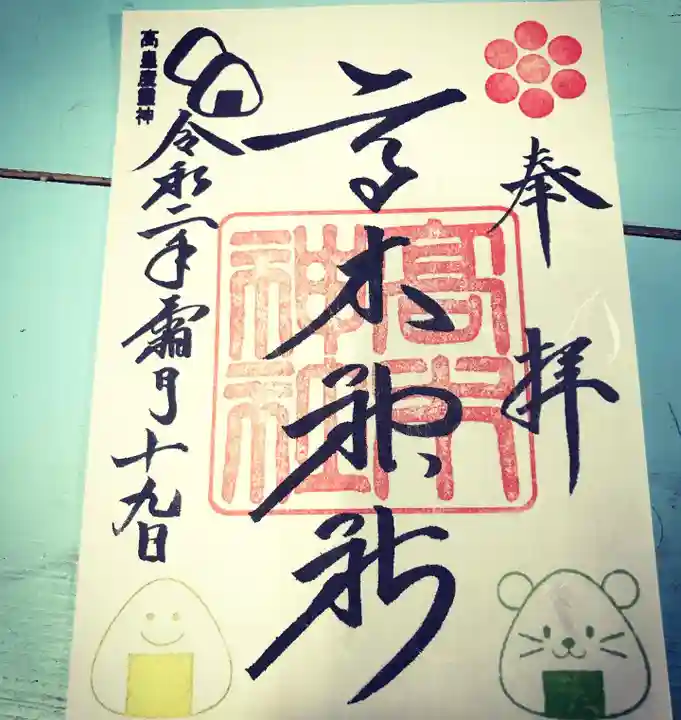 奉拝
高木神社
高木神社
令和二年霜月十九日
高皇産霊神